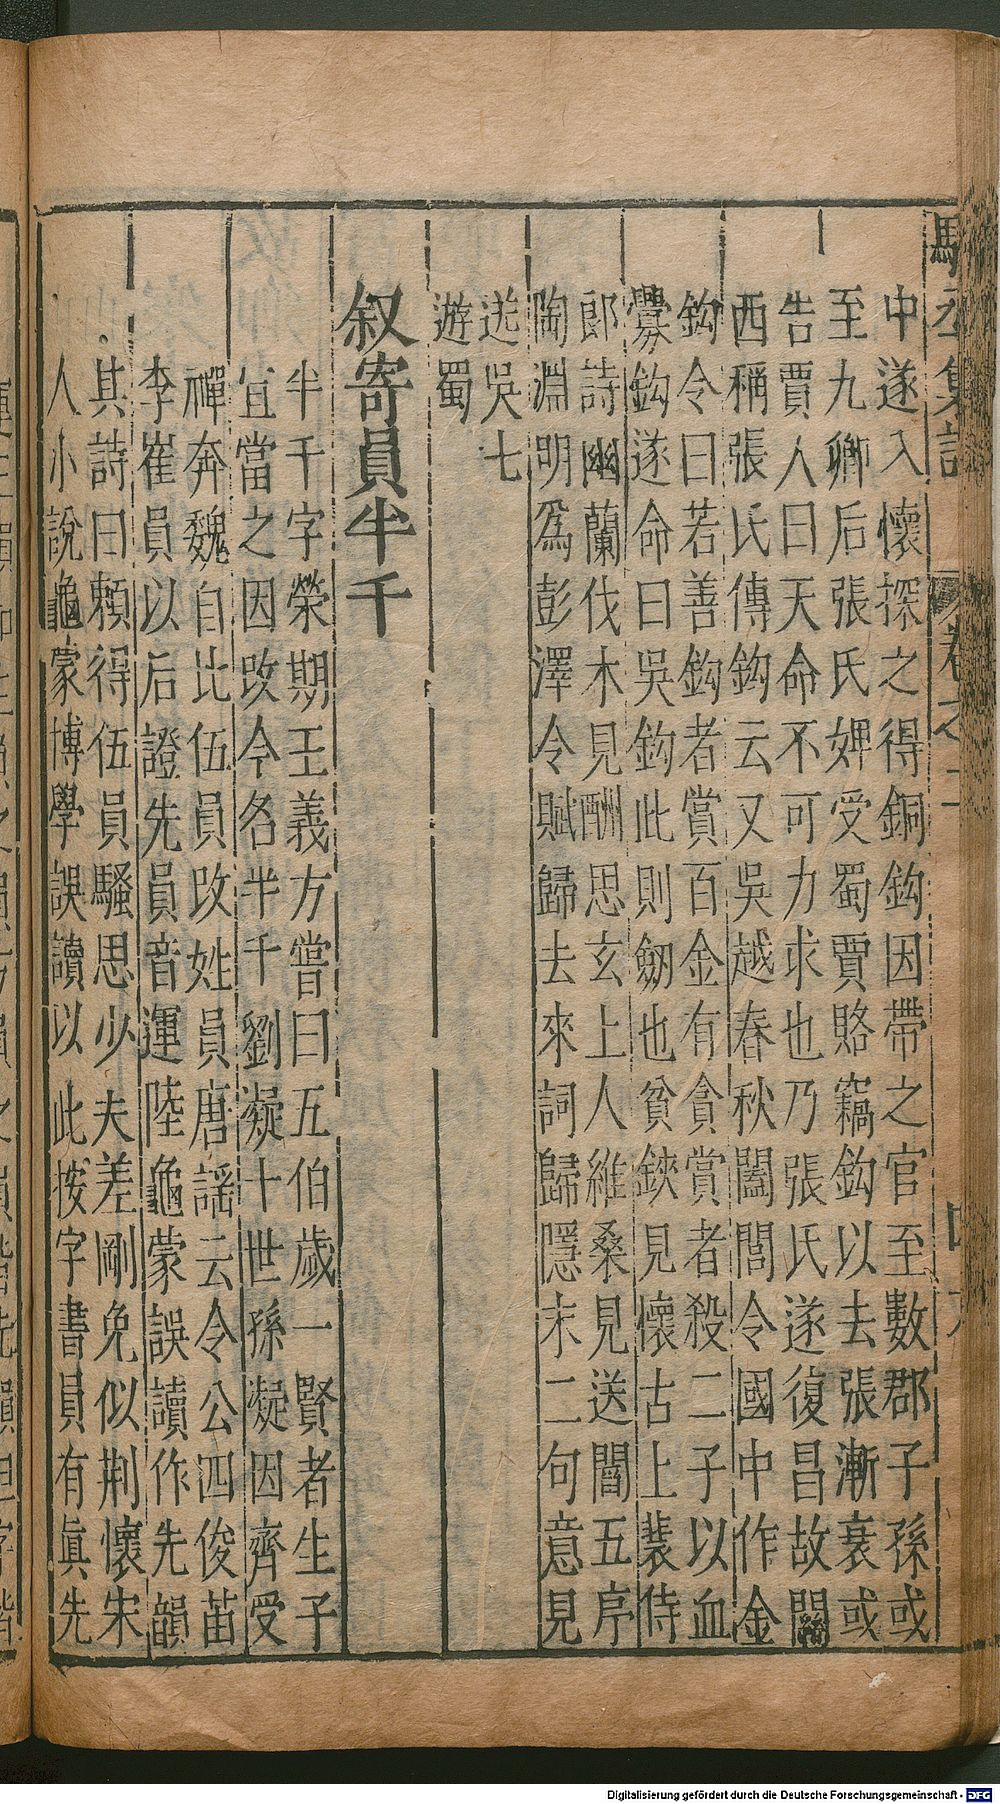 中遂入懷探之得銅鈎因帶之官至數郡子孫或
至九卿后張氏婢受蜀賈賂竊鈎以去張漸衰或
告賈人曰天命不可力求也乃張氏遂復昌故關
西稱張氏傳鈎云又吳越春秋闔閭令國中作金
鈎令曰若善鈎者賞百金有貪賞者殺二子以血
釁鈎遂命曰吳鈎鈎此則劒也貧鋏見懷古上裴侍
郎詩幽蘭伐木見酬思玄上人維桑見送閻五序
陶淵明爲彭澤令賦歸去來詞歸隱末二句意見
送吳七
遊蜀
叙寄員半千
半千字榮期王義方嘗曰五伯歲一賢者生子
宜當之因改今名半千劉凝十世孫凝因齊受
禪奔魏自比伍員改姓員唐謡云令公四俊苗
李崔員以后證先員音運陸龜蒙誤讀作先韻
其詩曰賴得伍員騷思少夫差剛免似荆懷宋
人小說龜蒙博學誤讀以此按字書員有眞先
集註
卷之
Digitalisierung gefördert durch die Deutsche Forschungsgemeinschaft - DFG